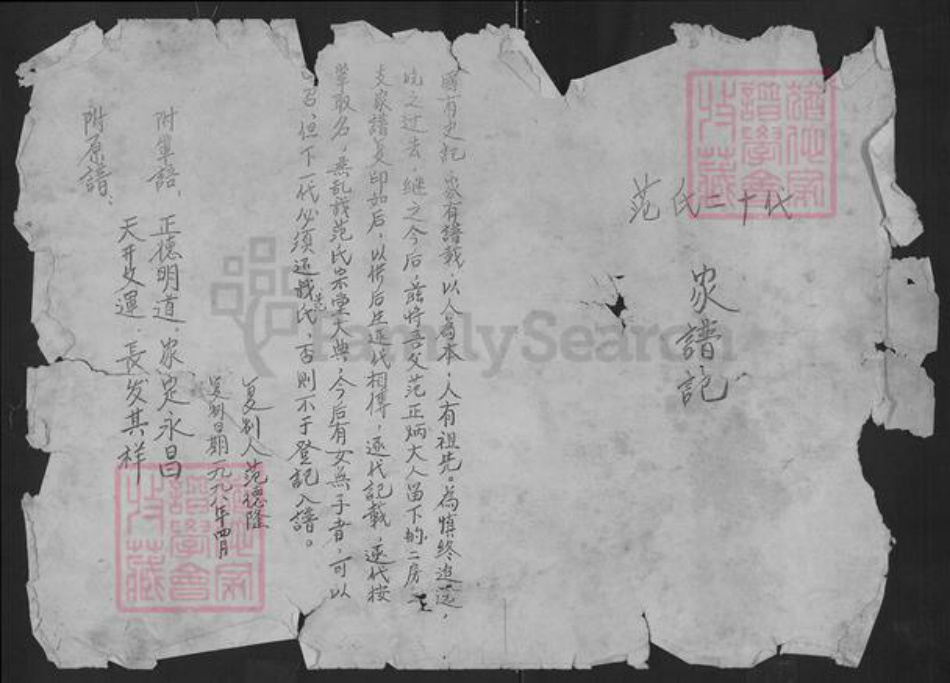 范氏二十代
家譜記
國有史記，家有譜載，以人為本，人有祖先。為慎終追远，
之过去，继之今后，兹将吾父范正炳大人留下的二房一
支家譜复印如后，以供后足逐代相傳，逐代記載，逐代按
取名，無乱我范氏宗堂大典，今后有女無子者，可以
召，但下一代必须还我范氏，否則不于登記入譜。
复制人范德隆
复制日期一九九八年四月
附单語、正德明道，家定永昌
天开文運，長发其样
附原譜：
譜學會
收藏
譜學會
收藏
FamilySearch